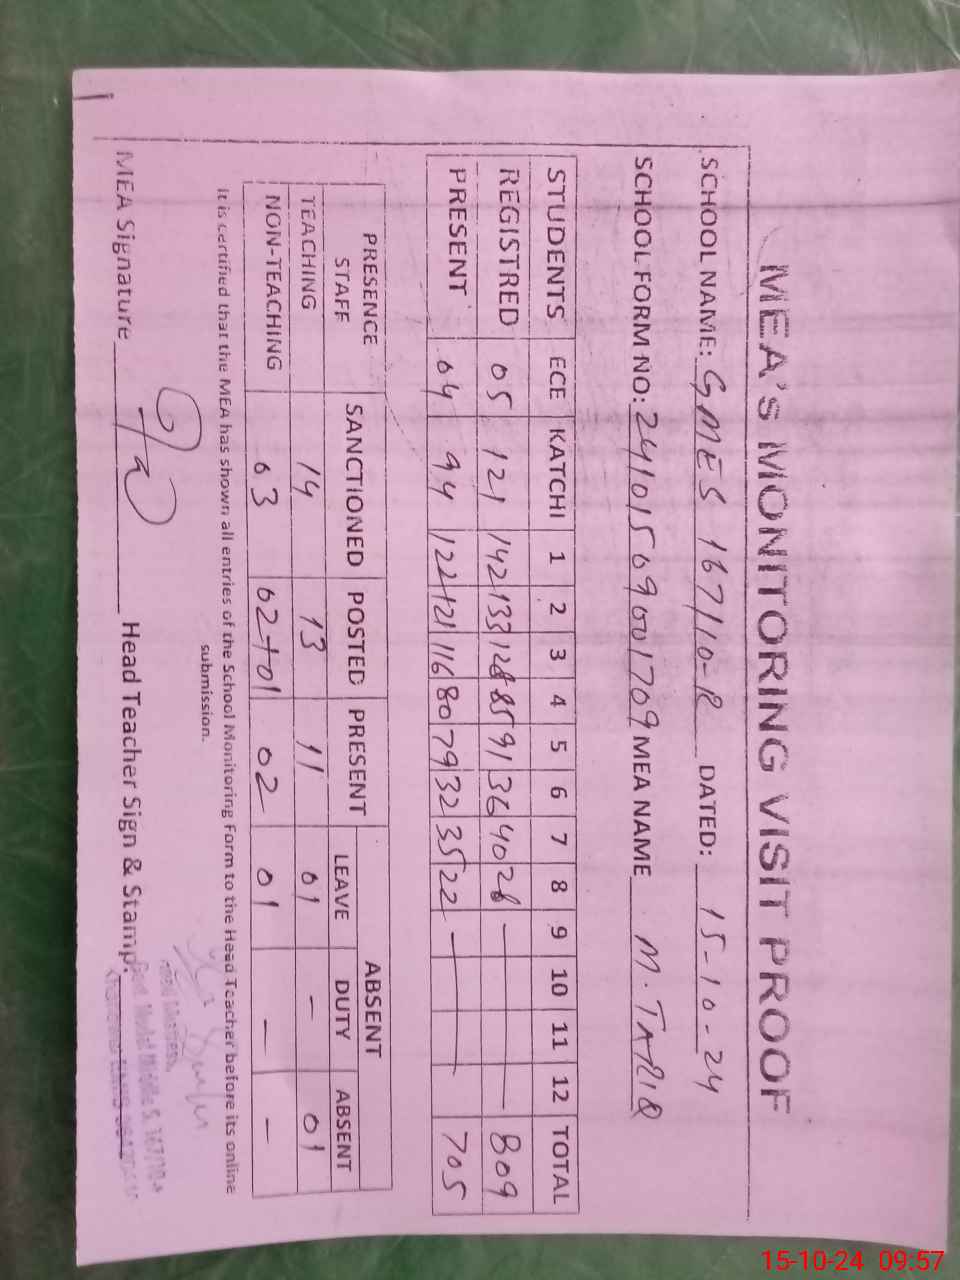 MEA'S MONITORING VISIT PROOF
SCHOOL NAME: GMES 167/10-R DATED: 15-10-24
SCHOOL FORM NO: 24101569001709 MEA NAME M. TARIQ
STUDENTS ECE KATCHI 1 2 3 4 5 6 7 8 9 10 11 12 TOTAL
REGISTRED 05 121 142 133 128 85 91 36 40 28 — — 809
PRESENT 04 94 122 121 116 80 79 32 35 22 — 705
PRESENCE STAFF SANCTIONED POSTED PRESENT ABSENT
LEAVE DUTY ABSENT
TEACHING 14 13 11 01 - 01
NON-TEACHING 03 02+01 02 01 — —
It is certified that the MEA has shown all entries of the School Monitoring Form to the Head Teacher before its online
submission.
MEA Signature Head Teacher Sign & Stamp:
Head Mistress
Govt. Model Middle S. 167/10-R
15-10-24 09:57